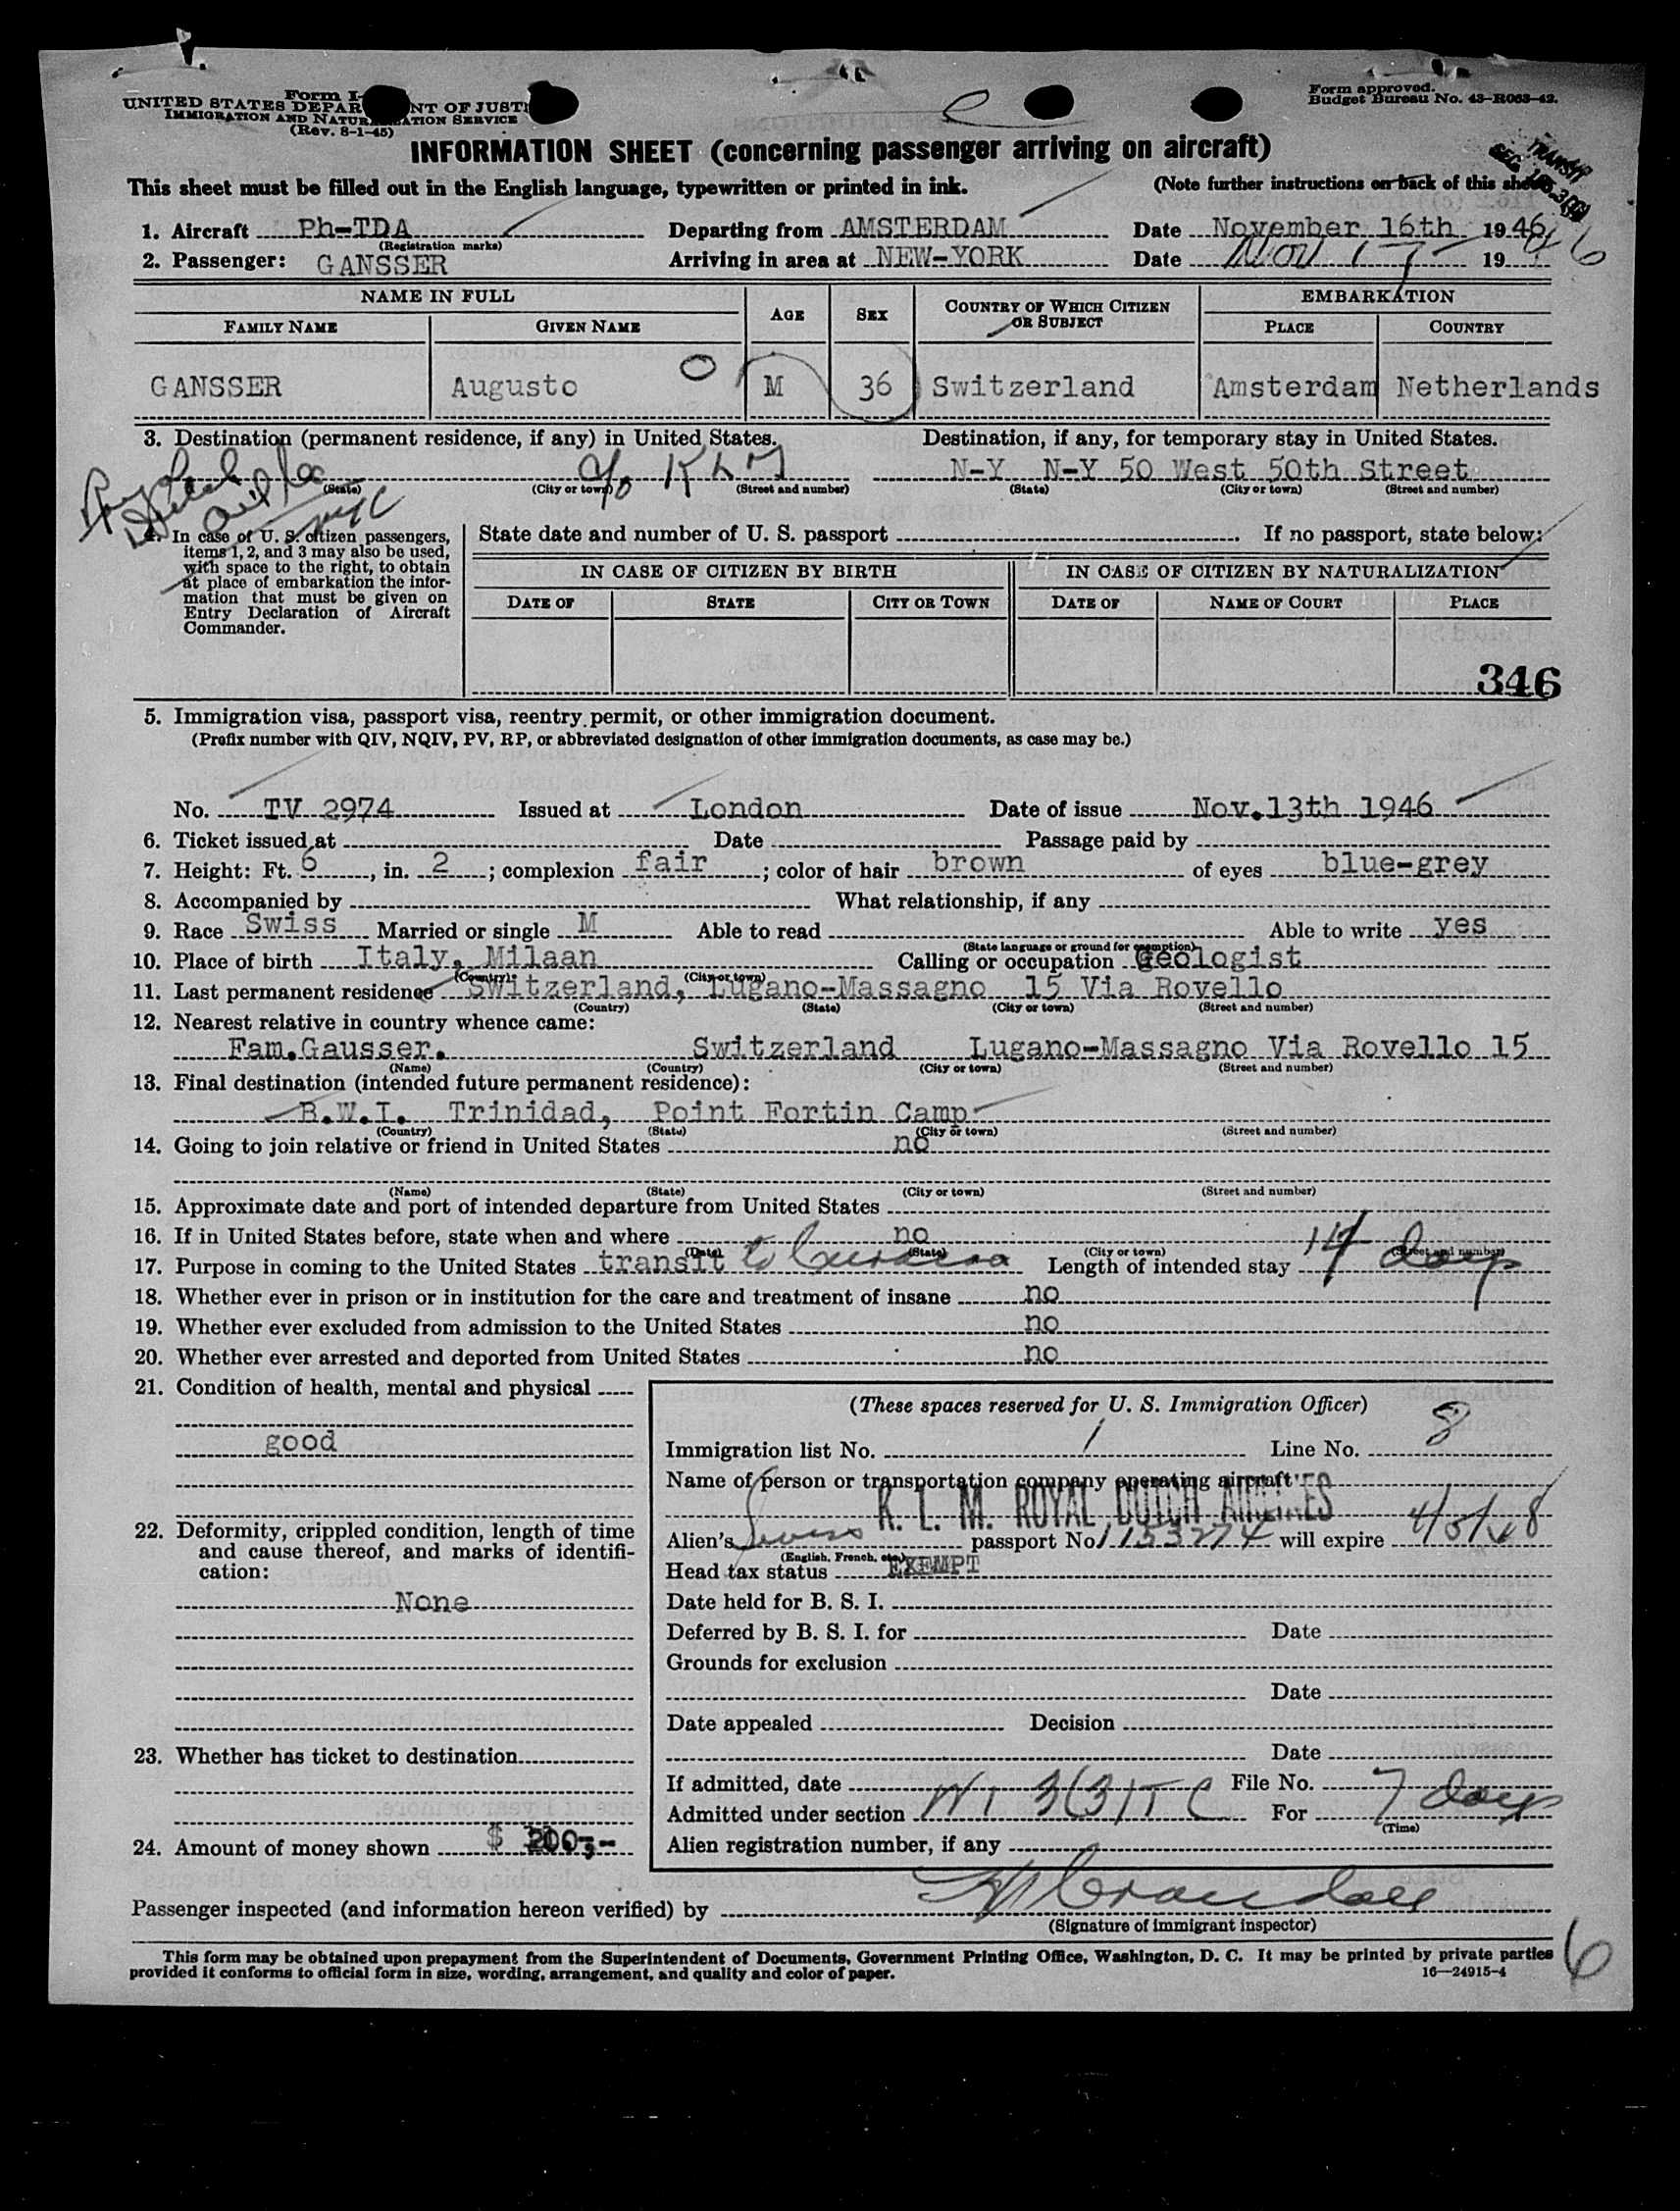 Form I-
UNITED STATES DEPAR NT OF JUSTI
IMMIGRATION AND NATUR ATION SERVICE
(Rev. 8-1-45)
Form approved.
Budget Bureau No. 43-R063-42.
INFORMATION SHEET (concerning passenger arriving on aircraft)
TRANSIT
SEC
This sheet must be filled out in the English language, typewritten or printed in ink. (Note further instructions on back of this sheet
1. Aircraft Ph-TDA Departing from AMSTERDAM Date November 16th 1946
(Registration marks)
2. Passenger: GANSSER Arriving in area at NEW-YORK Date Nov 17 19 46
NAME IN FULL AGE SEX COUNTRY OF WHICH CITIZEN OR SUBJECT EMBARKATION
FAMILY NAME GIVEN NAME PLACE COUNTRY
GANSSER Augusto O M 36 Switzerland Amsterdam Netherlands
3. Destination (permanent residence, if any) in United States. Destination, if any, for temporary stay in United States.
c/o KLM N-Y N-Y 50 West 50th Street
(State) (City or town) (Street and number) (State) (City or town) (Street and number)
Royal Dutch Airlines NYC
4. In case of U. S. citizen passengers, items 1, 2, and 3 may also be used, with space to the right, to obtain at place of embarkation the information that must be given on Entry Declaration of Aircraft Commander.
State date and number of U. S. passport If no passport, state below:
IN CASE OF CITIZEN BY BIRTH IN CASE OF CITIZEN BY NATURALIZATION
DATE OF STATE CITY OR TOWN DATE OF NAME OF COURT PLACE
346
5. Immigration visa, passport visa, reentry permit, or other immigration document.
(Prefix number with QIV, NQIV, PV, RP, or abbreviated designation of other immigration documents, as case may be.)
No. TV 2974 Issued at London Date of issue Nov.13th 1946
6. Ticket issued at Date Passage paid by
7. Height: Ft. 6, in. 2; complexion fair; color of hair brown of eyes blue-grey
8. Accompanied by What relationship, if any
9. Race Swiss Married or single M Able to read Able to write yes
(State language or ground for exemption)
10. Place of birth Italy, Milaan Calling or occupation Geologist
(Country) (City or town)
11. Last permanent residence Switzerland, Lugano-Massagno 15 Via Rovello
(Country) (State) (City or town) (Street and number)
12. Nearest relative in country whence came:
Fam.Gausser. Switzerland Lugano-Massagno Via Rovello 15
(Name) (Country) (City or town) (Street and number)
13. Final destination (intended future permanent residence):
B.W.I. Trinidad, Point Fortin Camp
(Country) (State) (City or town) (Street and number)
14. Going to join relative or friend in United States no
(Name) (State) (City or town) (Street and number)
15. Approximate date and port of intended departure from United States
16. If in United States before, state when and where no
(Date) (State) (City or town) (Street and number)
17. Purpose in coming to the United States transit to Curacao Length of intended stay 14 days
18. Whether ever in prison or in institution for the care and treatment of insane no
19. Whether ever excluded from admission to the United States no
20. Whether ever arrested and deported from United States no
21. Condition of health, mental and physical
good
22. Deformity, crippled condition, length of time and cause thereof, and marks of identification:
None
23. Whether has ticket to destination
24. Amount of money shown $ 200,--
(These spaces reserved for U. S. Immigration Officer)
Immigration list No. 1 Line No. 8
Name of person or transportation company operating aircraft
K. L. M. ROYAL DUTCH AIRLINES
Alien's Swiss passport No. 1153274 will expire 4/5/48
(English, French, etc.)
Head tax status EXEMPT
Date held for B. S. I.
Deferred by B. S. I. for Date
Grounds for exclusion
Date
Date appealed Decision
Date
If admitted, date File No.
Admitted under section 3(3) For 7 days
(Time)
Alien registration number, if any
Passenger inspected (and information hereon verified) by
(Signature of immigrant inspector)
This form may be obtained upon prepayment from the Superintendent of Documents, Government Printing Office, Washington, D. C. It may be printed by private parties
provided it conforms to official form in size, wording, arrangement, and quality and color of paper. 16—24915-4
6